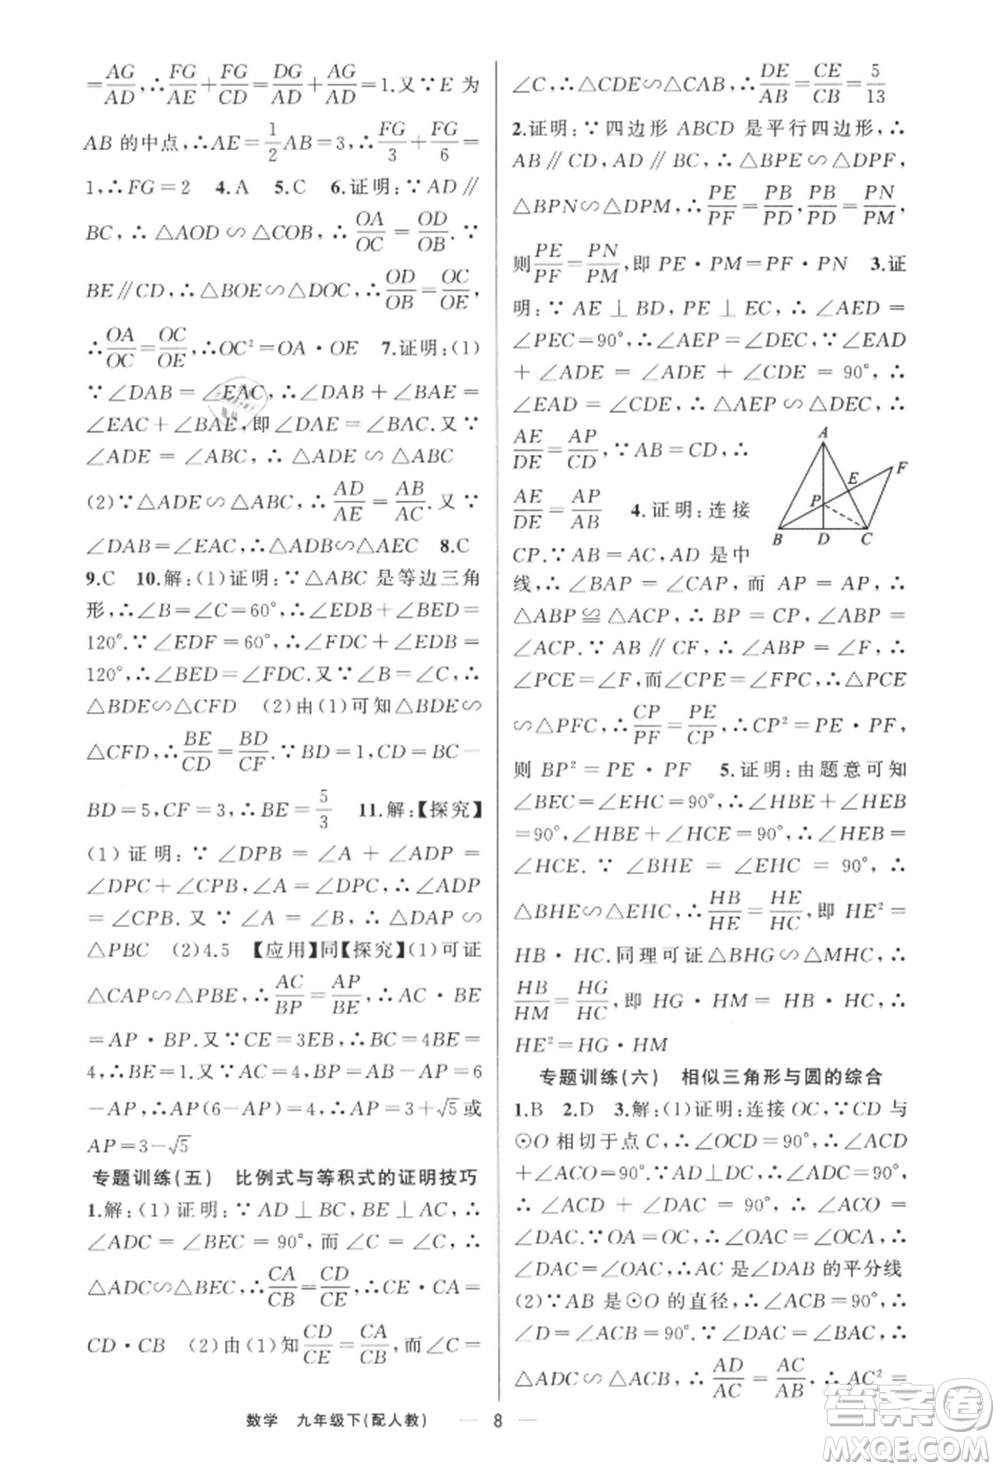 =AG/AD,∴FG/AE+FG/CD=DG/AD+AG/AD=1.又∵E 为
AB 的中点,∴AE=1/2AB=3,∴FG/3+FG/6=
1,∴FG=2 4.A 5.C 6.证明:∵AD∥
BC,∴△AOD∽△COB,∴OA/OC=OD/OB.∵
BE∥CD,∴△BOE∽△DOC,∴OD/OB=OC/OE,
∴OA/OC=OC/OE,∴OC²=OA·OE 7.证明:(1)
∵∠DAB=∠EAC,∴∠DAB+∠BAE=
∠EAC+∠BAE,即∠DAE=∠BAC.又∵
∠ADE=∠ABC,∴△ADE∽△ABC
(2)∵△ADE∽△ABC,∴AD/AE=AB/AC.又∵
∠DAB=∠EAC,∴△DAB∽△AEC 8.C
9.C 10.解:(1)证明:∵△ABC 是等边三角
形,∴∠B=∠C=60°,∴∠EDB+∠BED=
120°.∵∠EDF=60°,∴∠FDC+∠EDB=
120°,∴∠BED=∠FDC.又∵∠B=∠C,∴
△BDE∽△CFD (2)由(1)可知△BDE∽
△CFD,∴BE/CD=BD/CF.∵BD=1,CD=BC-
BD=5,CF=3,∴BE=5/3 11.解:【探究】
(1)证明:∵∠DPB=∠A+∠ADP=
∠DPC+∠CPB,∠A=∠DPC,∴∠ADP
=∠CPB.又∵∠A=∠B,∴△DAP∽
△PBC (2)4.5 【应用】同【探究】(1)可证
△CAP∽△PBE,∴AC/BP=AP/BE,∴AC·BE
=AP·BP.又∵CE=3EB,∴BC=4BE=
4,∴BE=1.又∵AC=4,BP=AB-AP=6-
AP,∴AP(6-AP)=4,∴AP=3+√5或
AP=3-√5
专题训练(五) 比例式与等积式的证明技巧
1.解:(1)证明:∵AD⊥BC,BE⊥AC,∴
∠ADC=∠BEC=90°,而∠ACD=∠BCE,
∴△ADC∽△BEC,∴CA/CB=CD/CE,∴CE·CA=
CD·CB (2)由(1)知CD/CE=CA/CB,而∠C=
∠C,∴△CDE∽△CAB,∴DE/AB=CE/CB=5/13
2.证明:∵四边形 ABCD 是平行四边形,∴
AB∥CD,AD∥BC,∴△BPE∽△DPF,
△BPN∽△DPM,∴PE/PF=PB/PD,PB/PD=PN/PM,
则PE/PF=PN/PM,即 PE·PM=PF·PN 3.证
明:∵AE⊥BD,PE⊥EC,∴∠AED=
∠PEC=90°,∴∠AEP=∠DEC.∵∠EAD
+∠ADE=∠ADE+∠CDE=90°,∴
∠EAD=∠CDE,∴△AEP∽△DEC,∴
AE/DE=AP/CD.又∵AB=CD,∴
AE/DE=AP/AB 4.证明:连接
CP.∵AB=AC,AD 是中
线,∴∠BAP=∠CAP,而 AP=AP,∴
△ABP≌△ACP,∴BP=CP,∠ABP=
∠ACP.∵AB∥CF,∴∠ABP=∠F,∴
∠PCE=∠F,而∠CPE=∠FPC,∴△PCE
∽△PFC,∴CP/PF=PE/CP,∴CP²=PE·PF,
则 BP²=PE·PF 5.证明:由题意可知
∠BEC=∠EHC=90°,∴∠HBE+∠HEB
=90°,∠HBE+∠HCE=90°,∴∠HEB=
∠HCE.又∵∠BHE=∠EHC=90°,∴
△BHE∽△EHC,∴HB/HE=HE/HC,即 HE²=
HB·HC.同理可证△BHG∽△MHC,∴
HB/HM=HG/HC,即 HG·HM=HB·HC,∴
HE²=HG·HM
专题训练(六) 相似三角形与圆的综合
1.B 2.D 3.解:(1)证明:连接 OC,∵CD 与
⊙O 相切于点 C,∴∠OCD=90°,∴∠ACD+
∠ACO=90°.∵∠ADC=90°,∴∠ACD+
∠DAC=90°,∴∠ACO=
∠DAC.∵OA=OC,∴∠OAC=∠OCA,∴
∠DAC=∠OAC,∴AC 是∠DAB 的平分线
(2)∵AB 是⊙O 的直径,∴∠ACB=90°,∴
∠D=∠ACB=90°.∵∠DAC=∠BAC,∴
△ADC∽△ACB,∴AD/AC=AC/AB,∴AC²=
A
E
F
P
B
D
C
数学 九年级下(配人教)
8
答案圈
MXQE.COM